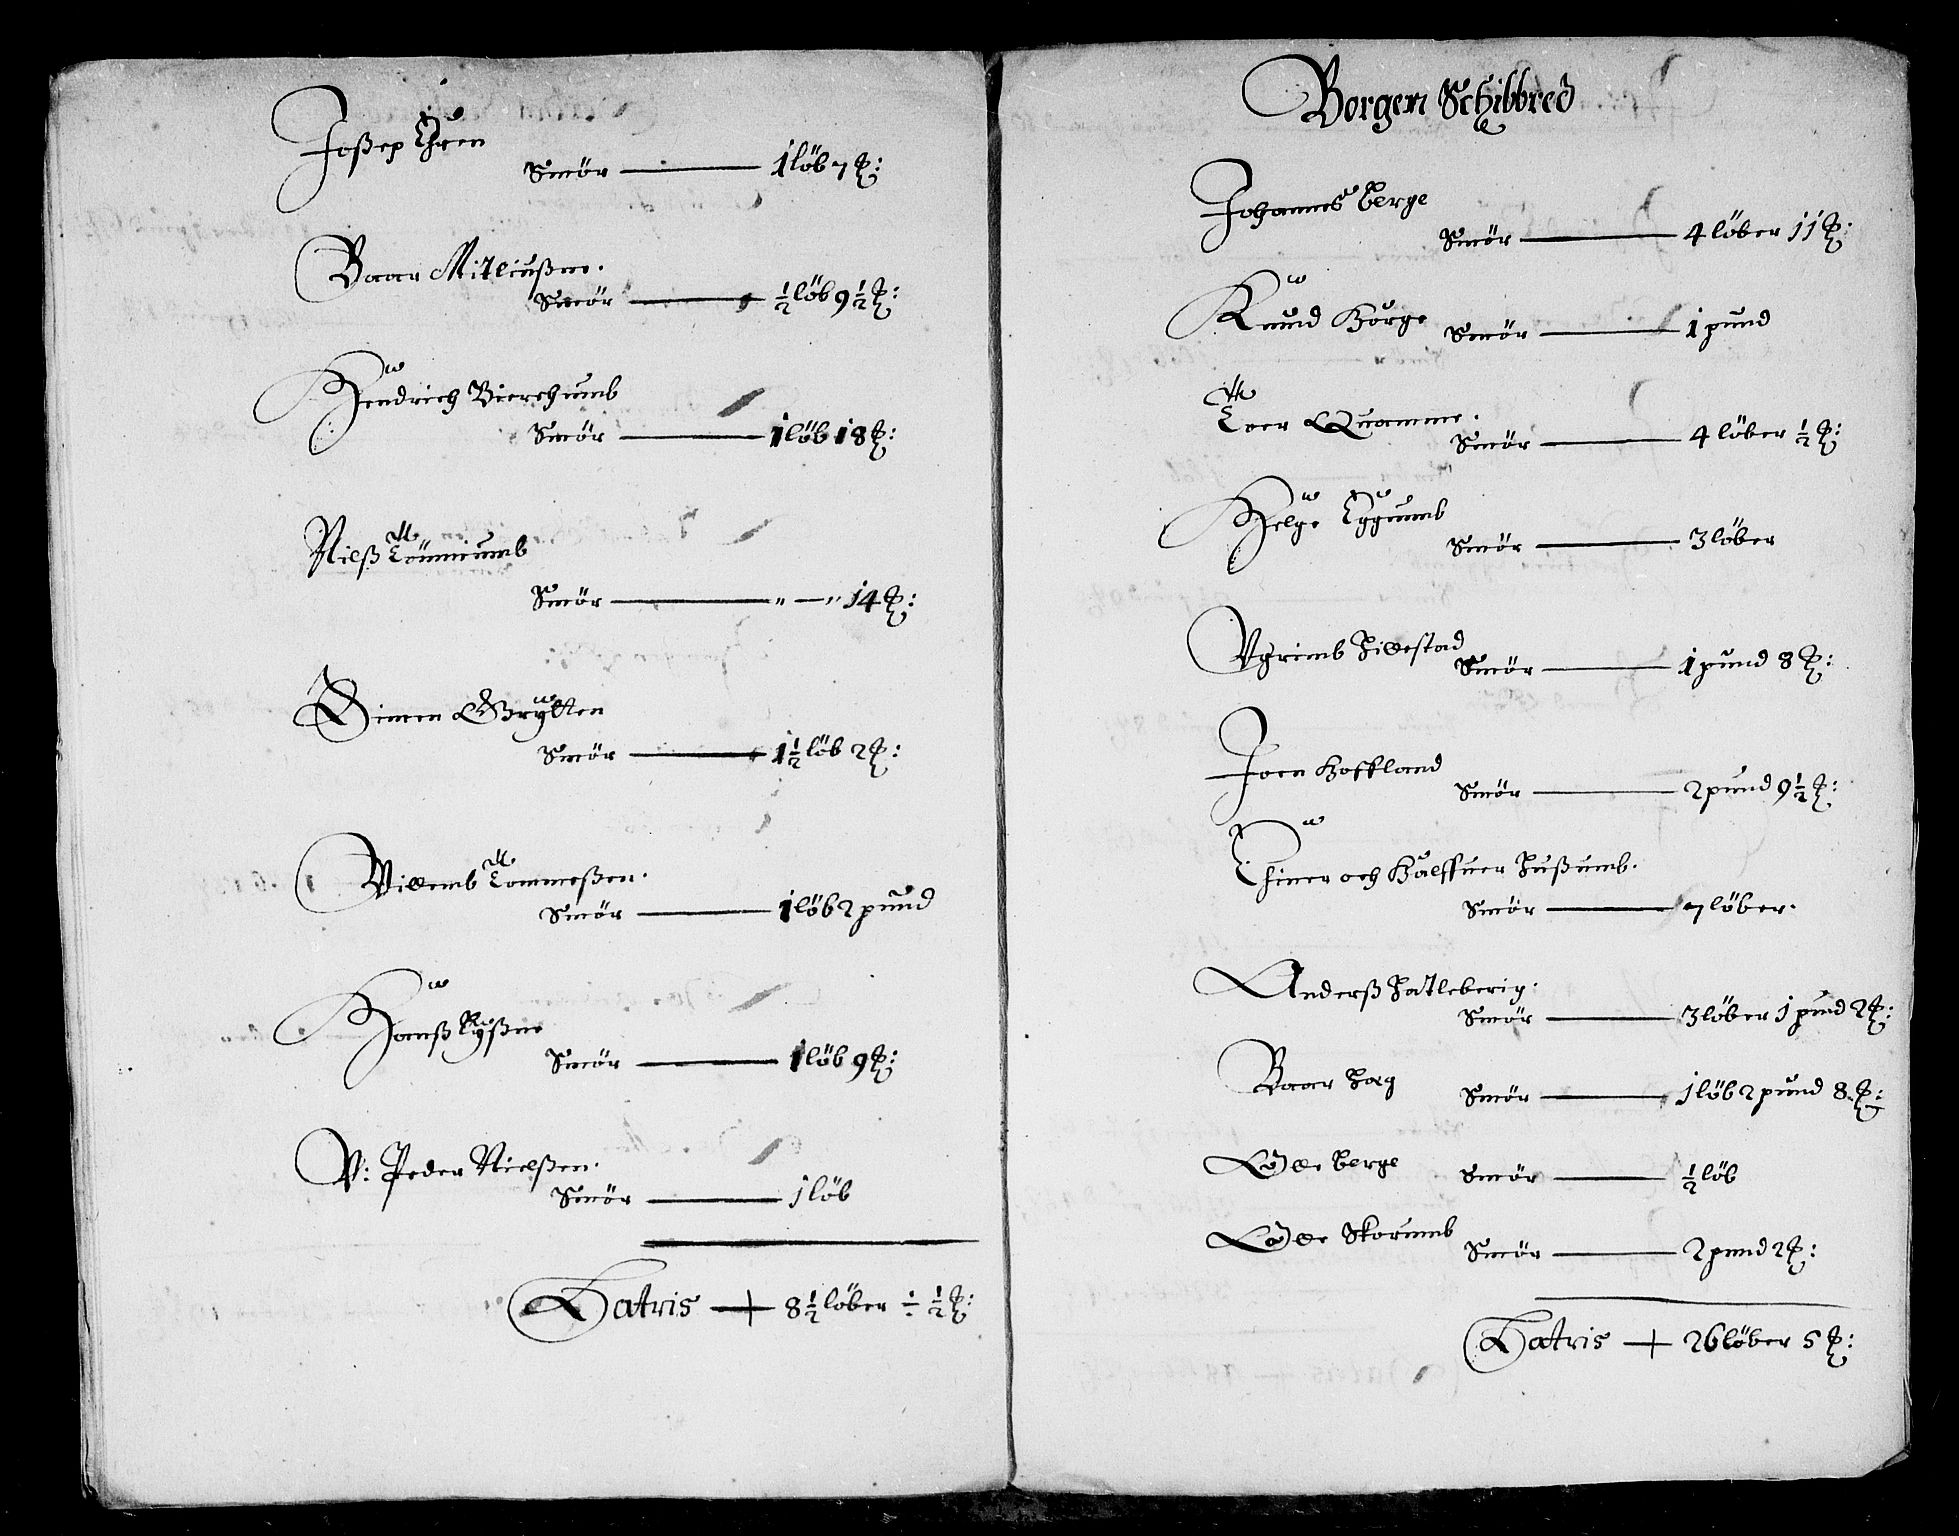 Joßep Ehren
Smör — 1 löb 7 ℔:
Baar Mitleiußne.
Smör — ½ löb 9½ ℔:
Hendrich Bierchumb
Smör — 1 löb 18 ℔:
Nielß
Smör — " — " 14 ℔:
Simen Grÿtten
Smör — 1½ löb 2 ℔:
Villemb Tommeßen.
Smör — 1 löb 2 pund
Hanß Rÿßne
Smör — 1 löb 9 ℔:
V: Peder Nielßen.
Smör — 1 löb
Latris — 8½ löber ÷ ½ ℔:
Borgen Schibbred
Johannes Berge
Smör — 4 löber 11 ℔:
Knud Hörge
Smör — 1 pund
Toer Quamme.
Smör — 4 löber ½ ℔:
Helge Eggumb
Smör — 3 löber
Vgrimb Hillestad
Smör — 1 pund 8 ℔:
Joen Hoffland
Smör — 2 pund 9½ ℔:
Einer och Halffuer Hußumb.
Smör — 7 löber.
Anderß Hatleberig.
Smör — 3 löber 1 pund 2 ℔:
Baar Hæg
Smör — 1 löb 2 pund 8 ℔:
Olle Berge
Smör — ½ löb
Olle Skorumb
Smör — 2 pund 2 ℔:
Latris — 26 löber 5 ℔: